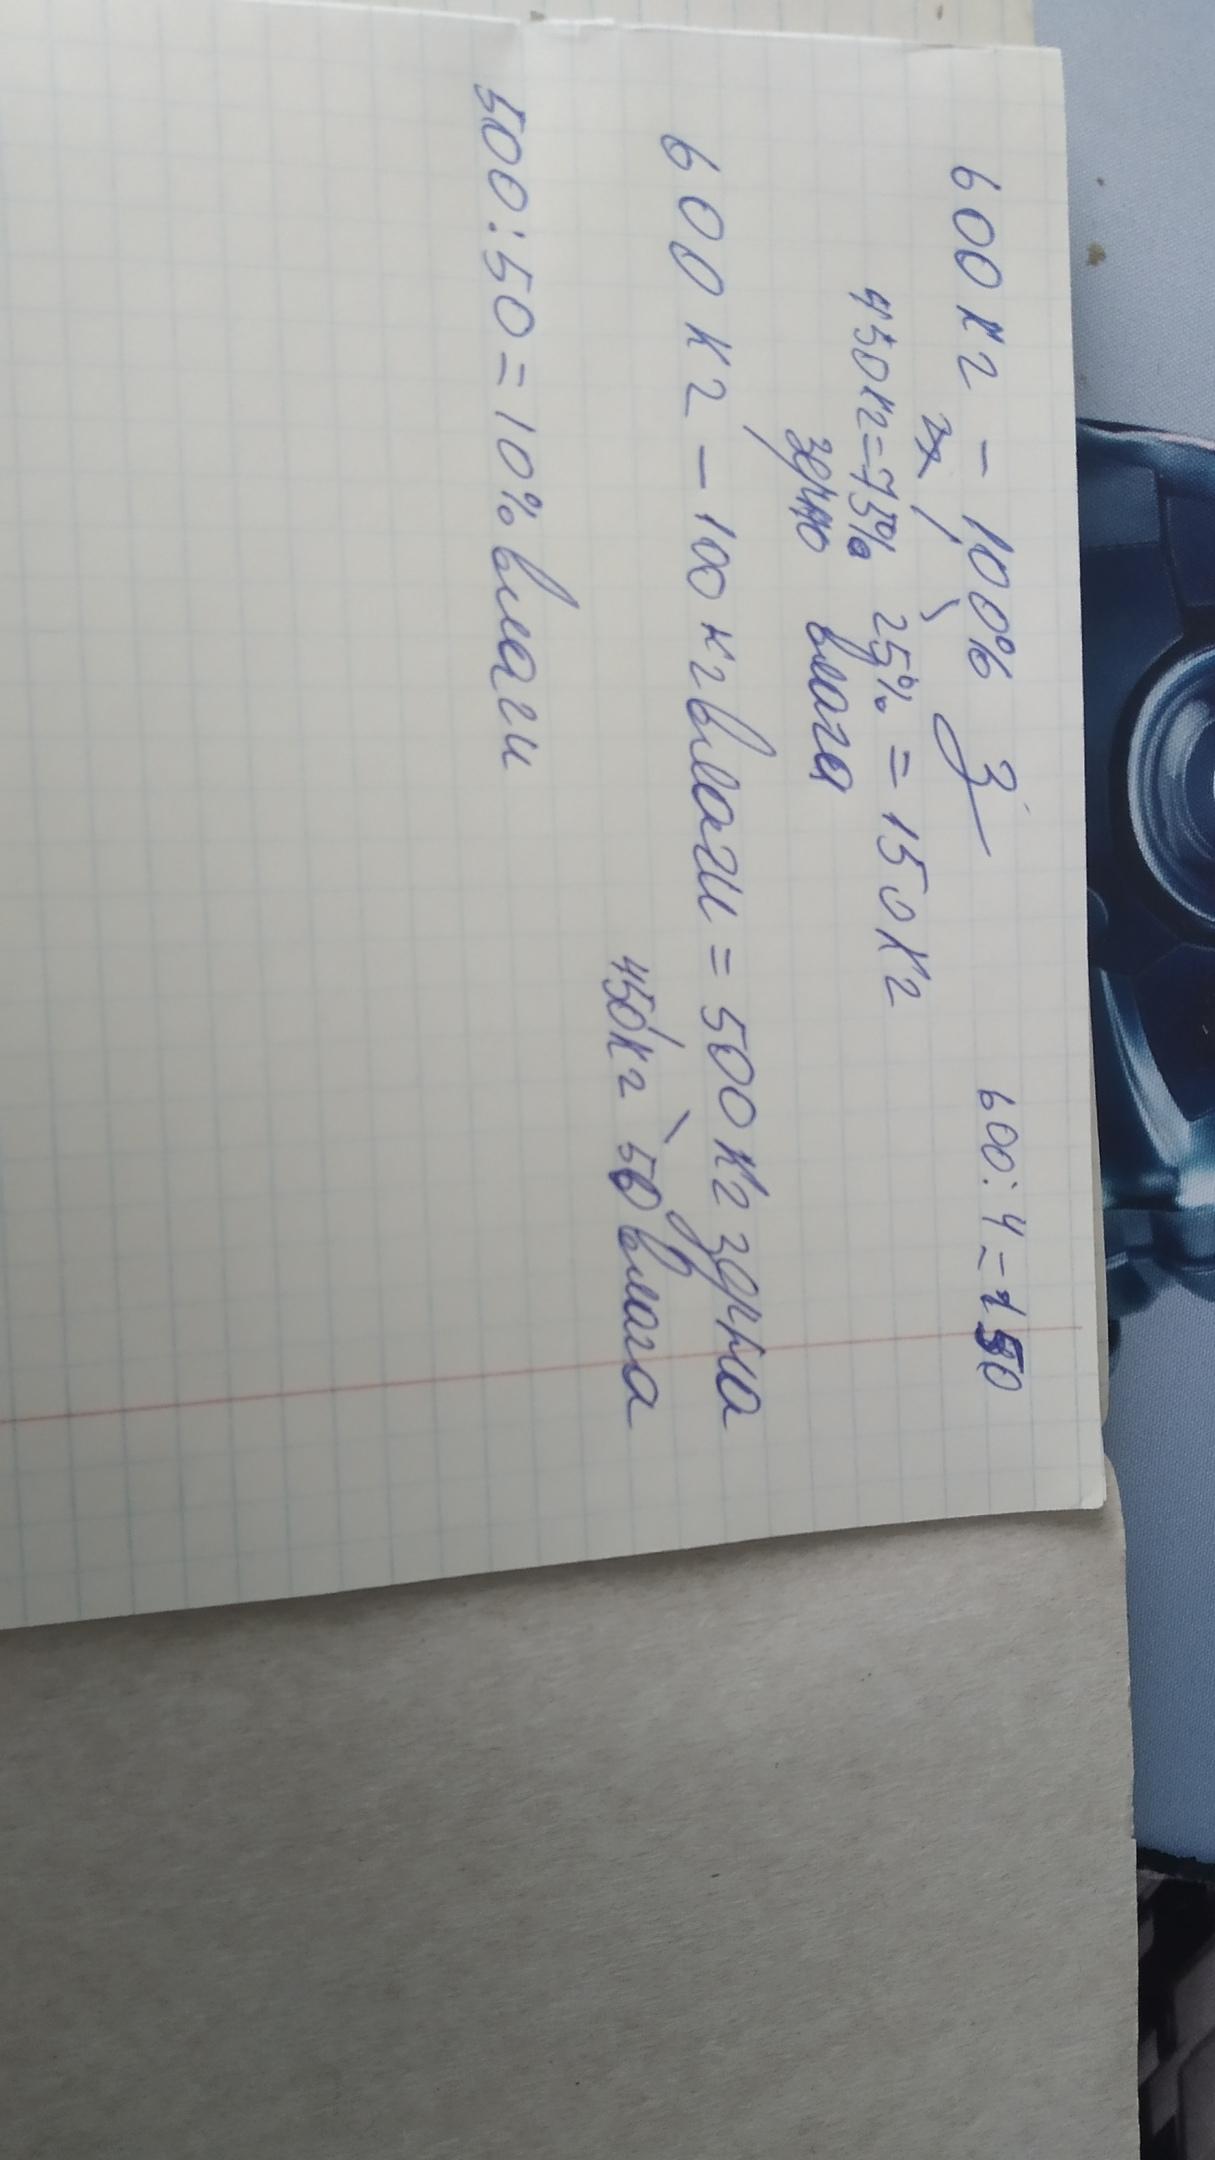 600 кг - 100% З
600:4=150
450кг=75% 25% = 150 кг
зерно влага
600 кг - 100 кг влаги = 500 кг зерна
450кг 50 влага
500:50=10% влаги